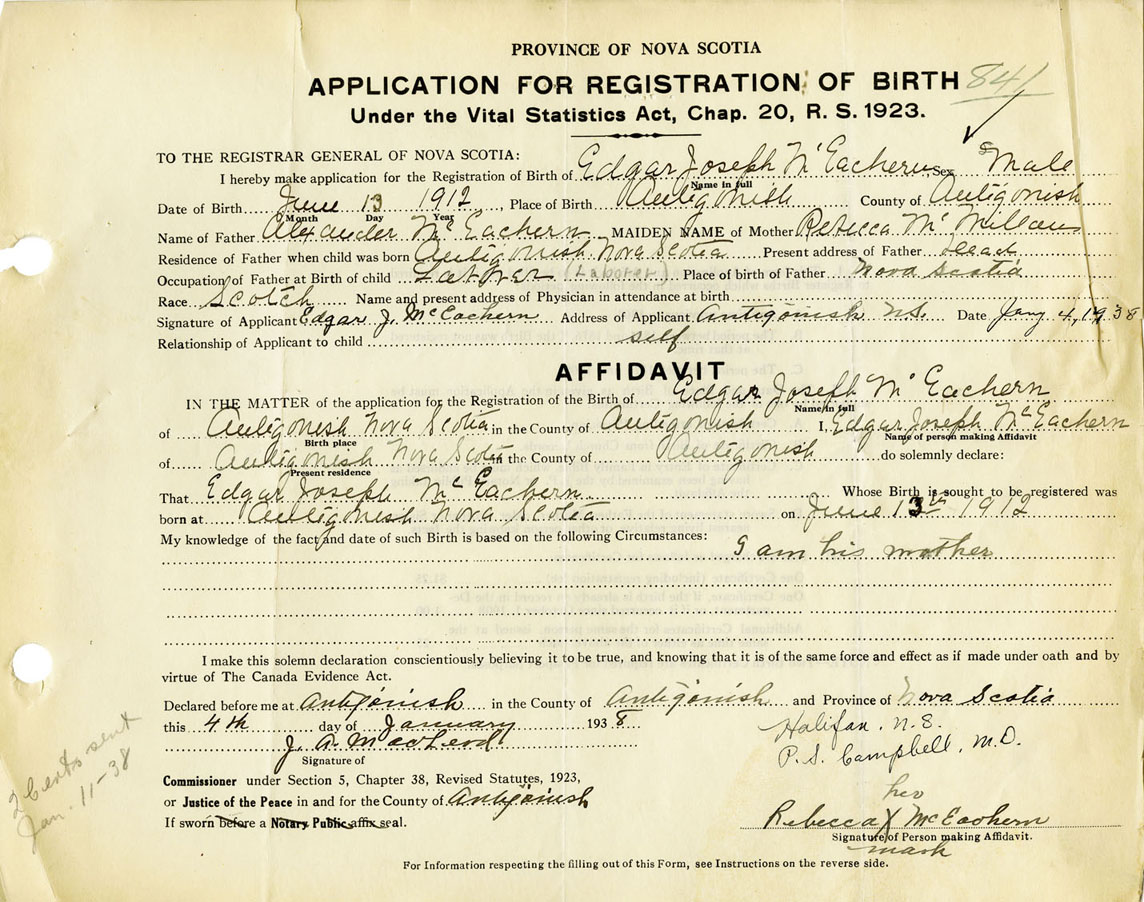 PROVINCE OF NOVA SCOTIA
APPLICATION FOR REGISTRATION OF BIRTH 841
Under the Vital Statistics Act, Chap. 20, R. S. 1923.
TO THE REGISTRAR GENERAL OF NOVA SCOTIA:
I hereby make application for the Registration of Birth of Edgar Joseph McEachern Sex Male
Name in full
Date of Birth June 13 1912, Place of Birth Antigonish County of Antigonish
Month Day Year
Name of Father Alexander McEachern MAIDEN NAME of Mother Rebecca McMillan
Residence of Father when child was born Antigonish Nova Scotia Present address of Father Dead
Occupation of Father at Birth of child Laborer (Laborer) Place of birth of Father Nova Scotia
Race Scotch Name and present address of Physician in attendance at birth
Signature of Applicant Edgar J. McEachern Address of Applicant Antigonish N.S. Date Jany 4, 1938
Relationship of Applicant to child self
AFFIDAVIT
IN THE MATTER of the application for the Registration of the Birth of Edgar Joseph McEachern
Name in full
of Antigonish Nova Scotia in the County of Antigonish I, Edgar Joseph McEachern
Birth place Name of person making Affidavit
of Antigonish Nova Scotia in the County of Antigonish do solemnly declare:
Present residence
That Edgar Joseph McEachern Whose Birth is sought to be registered was
born at Antigonish Nova Scotia on June 13th 1912
My knowledge of the fact and date of such Birth is based on the following Circumstances: I am his mother
I make this solemn declaration conscientiously believing it to be true, and knowing that it is of the same force and effect as if made under oath and by
virtue of The Canada Evidence Act.
Declared before me at Antigonish in the County of Antigonish and Province of Nova Scotia
this 4th day of January 1938 Halifax, N.S.
J. A. MacLeod P. S. Campbell, M.D.
Signature of
Commissioner under Section 5, Chapter 38, Revised Statutes, 1923,
or Justice of the Peace in and for the County of Antigonish her
If sworn before a Notary Public affix seal. Rebecca X McEachern
Signature of Person making Affidavit.
mark
For Information respecting the filling out of this Form, see Instructions on the reverse side.
2 Certs sent
Jan. 11-38